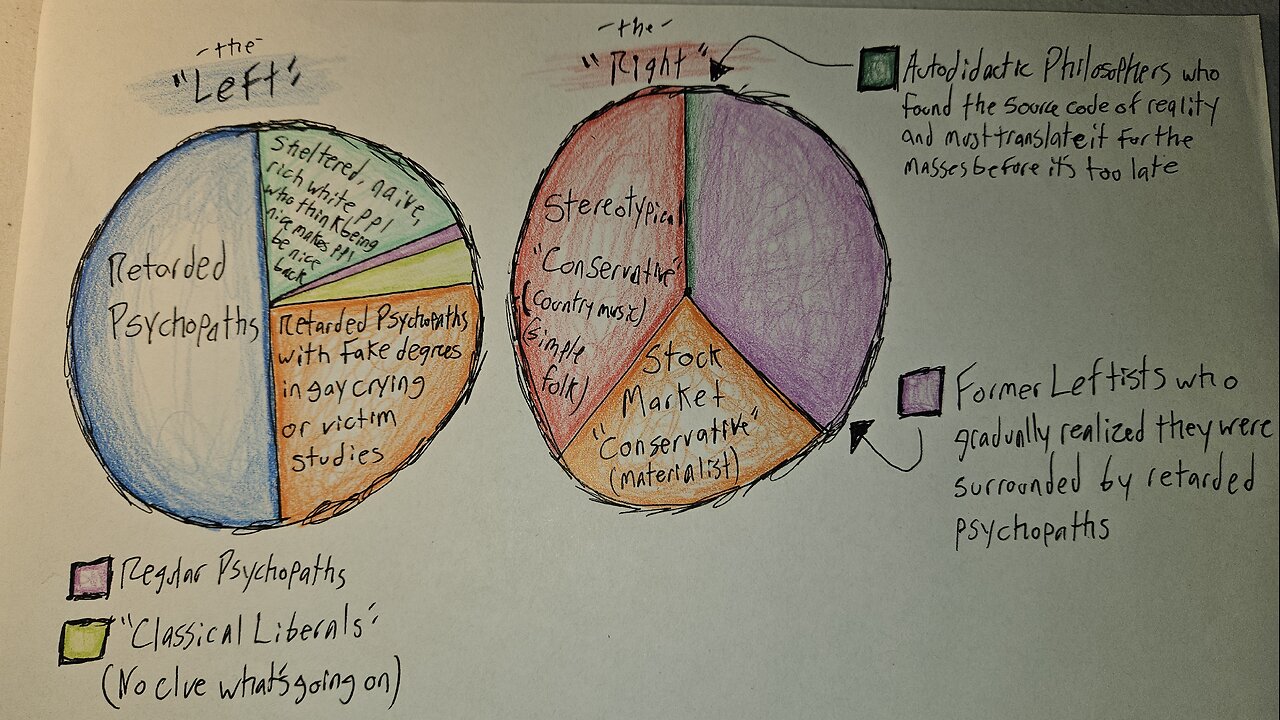 -the-
"Left"
Retarded
Psychopaths
Sheltered, naive,
rich white ppl
who think being
nice makes ppl
be nice
back
Retarded Psychopaths
with fake degrees
in gay crying
or victim
studies
Regular Psychopaths
"Classical Liberals"
(No clue what's going on)
-the-
"Right"
Stereotypical
"Conservative"
(country music)
(simple
folk)
Stock
Market
"Conservative"
(materialist)
Autodidactic Philosophers who
found the source code of reality
and must translate it for the
masses before it's too late
Former Leftists who
gradually realized they were
surrounded by retarded
psychopaths